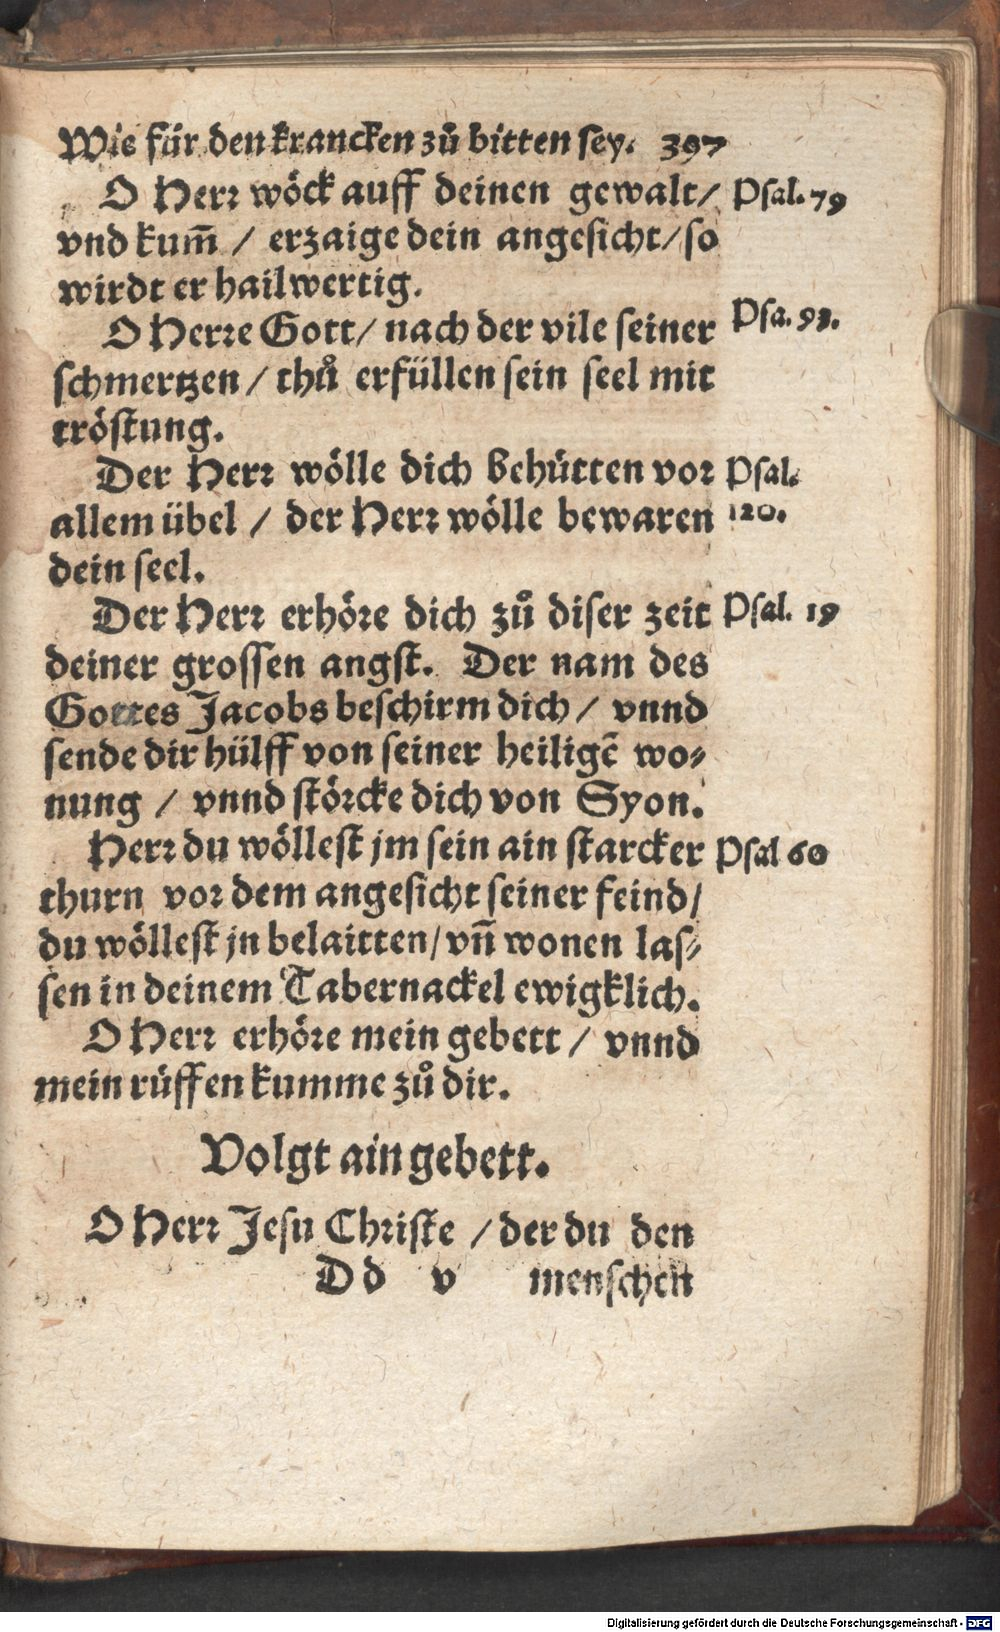 Wie für den krancken zů bitten sey. 397
O Herr wöck auff deinen gewalt/ Psal. 79
vnd kum̃ / erzaige dein angesicht/ so
wirdt er hailwertig.
O Herre Gott/ nach der vile seiner Psa. 93.
schmertzen / thů erfüllen sein seel mit
tröstung.
Der Herr wölle dich behütten vor Psal.
allem übel / der Herr wölle bewaren 120.
dein seel.
Der Herr erhöre dich zů diser zeit Psal. 19
deiner grossen angst. Der nam des
Gottes Jacobs beschirm dich / vnnd
sende dir hülff von seiner heiligẽ wo-
nung / vnnd störcke dich von Syon.
Herr du wöllest jm sein ain starcker Psal 60
thurn vor dem angesicht seiner feind/
du wöllest jn belaitten/ vñ wonen las-
sen in deinem Tabernackel ewigklich.
O Herr erhöre mein gebett / vnnd
mein rüffen kumme zů dir.
Volgt ain gebett.
O Herr Jesu Christe / der du den
D d v menschen
Digitalisierung gefördert durch die Deutsche Forschungsgemeinschaft - DFG